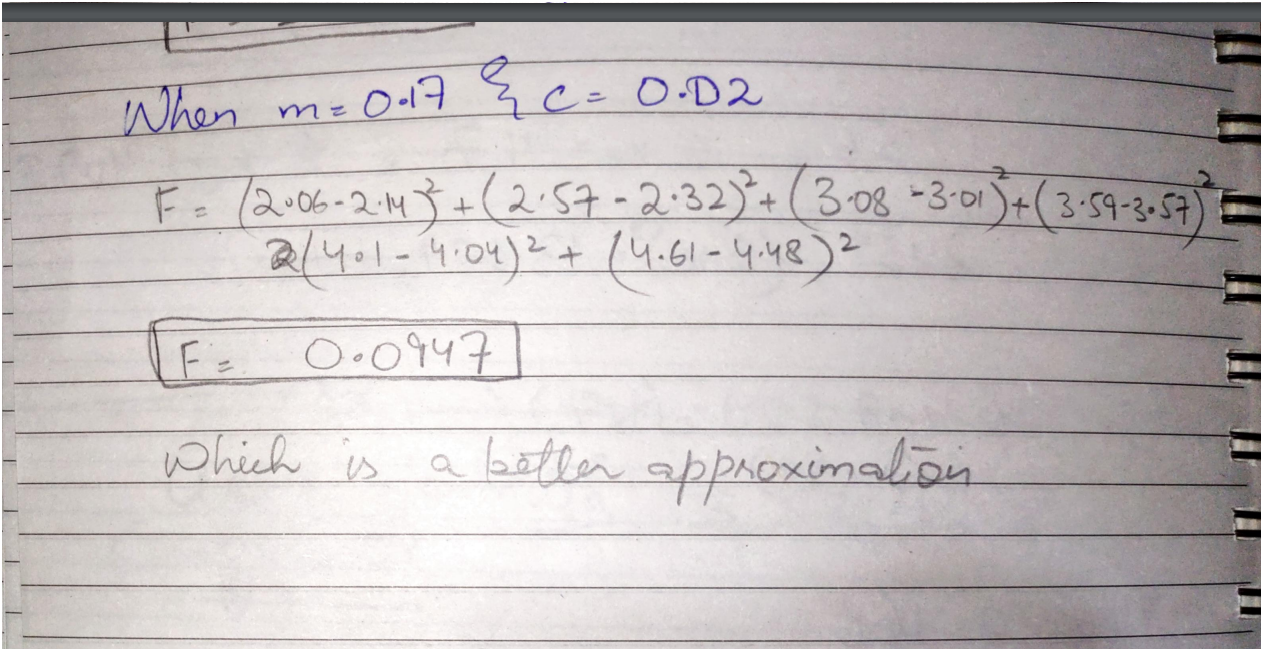 When m = 0.17 & c = 0.02
F = (2.06-2.14)² + (2.57 - 2.32)² + (3.08 - 3.01)² + (3.59-3.57)²
(4.1 - 4.04)² + (4.61 - 4.48)²
F = 0.0947
Which is a better approximation